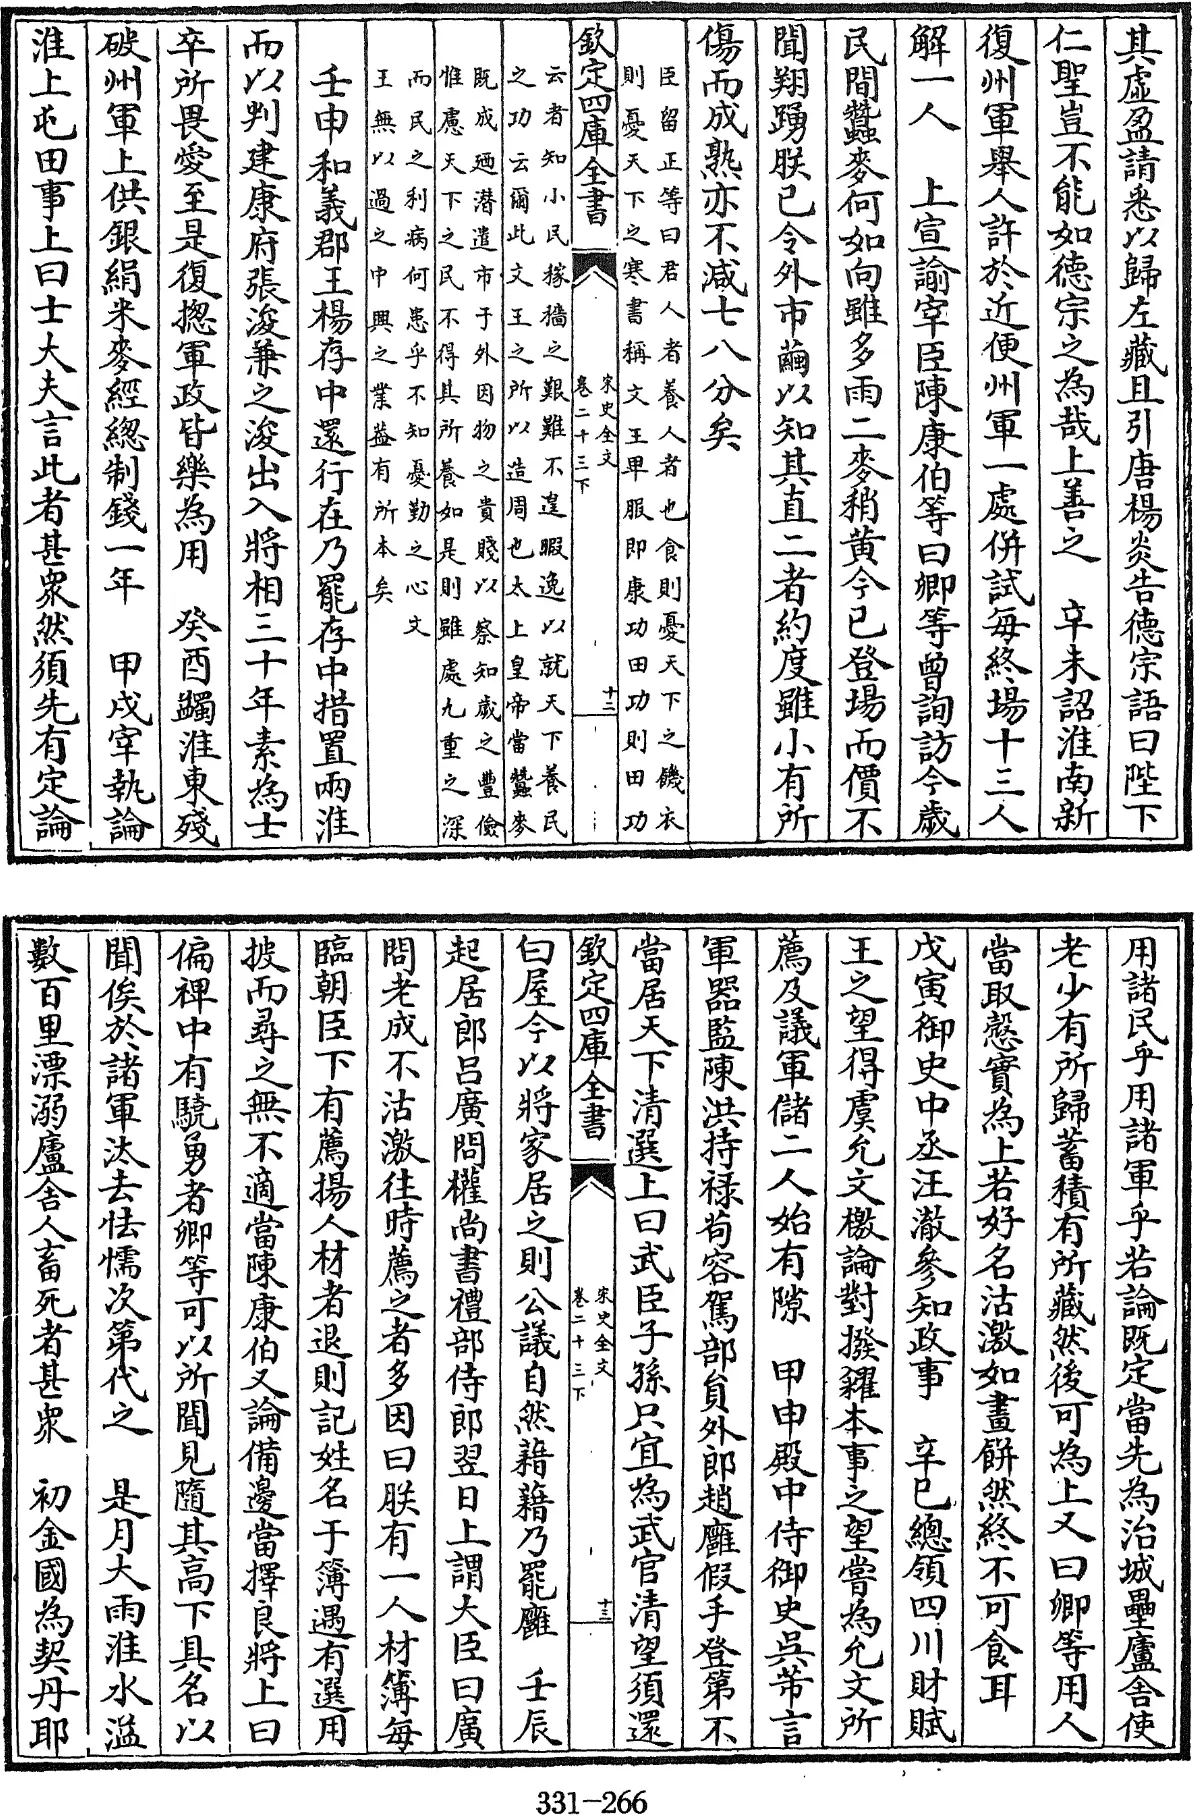 其虛盈請悉以歸左藏且引唐楊炎告德宗語曰陛下
仁聖豈不能如德宗之為哉上善之　辛未詔淮南新
復州軍舉人許於近便州軍一處併試每終場十三人
解一人　上宣諭宰臣陳康伯等曰卿等曾詢訪今歲
民間蠶麥何如向雖多雨二麥稍黄今已登場而價不
聞翔踴朕已令外市繭以知其直二者約度雖小有所
傷而成熟亦不減七八分矣
臣留正等曰君人者養人者也食則憂天下之饑衣
則憂天下之寒書稱文王卑服即康功田功則田功
欽定四庫全書
宋史全文
卷二十三下
十二
云者知小民稼穡之艱難不遑暇逸以就天下養民
之功云爾此文王之所以造周也太上皇帝當蠶麥
既成廼潛遣市于外因物之貴賤以察知歲之豐儉
惟慮天下之民不得其所養如是則雖處九重之深
而民之利病何患乎不知憂勤之心文
王無以過之中興之業葢有所本矣
壬申和義郡王楊存中還行在乃罷存中措置兩淮
而以判建康府張浚兼之浚出入將相三十年素為士
卒所畏愛至是復摠軍政皆樂為用　癸酉蠲淮東殘
破州軍上供銀絹米麥經總制錢一年　甲戌宰執論
淮上屯田事上曰士大夫言此者甚衆然須先有定論
用諸民乎用諸軍乎若論既定當先為治城壘廬舍使
老少有所歸蓄積有所藏然後可為上又曰卿等用人
當取慤實為上若好名沽激如畫餅然終不可食耳
戊寅御史中丞汪澈參知政事　辛巳總領四川財賦
王之望得虞允文檄論對撥糴本事之望嘗為允文所
薦及議軍儲二人始有隙　甲申殿中侍御史吳芾言
軍器監陳洪持禄茍容駕部員外郎趙廱假手登第不
當居天下清選上曰武臣子孫只宜為武官清望須還
欽定四庫全書
宋史全文
卷二十三下
十三
白屋今以將家居之則公議自然藉藉乃罷廱　壬辰
起居郎吕廣問權尚書禮部侍郎翌日上謂大臣曰廣
問老成不沽激往時薦之者多因曰朕有一人材簿每
臨朝臣下有薦揚人材者退則記姓名于簿遇有選用
披而尋之無不適當陳康伯又論備邊當擇良將上曰
偏裨中有驍勇者卿等可以所聞見隨其高下具名以
聞俟於諸軍汰去怯懦次第代之　是月大雨淮水溢
數百里漂溺廬舍人畜死者甚衆　初金國為契丹耶
331-266